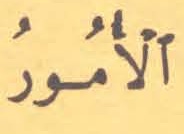 ٱلْأُمُورُ